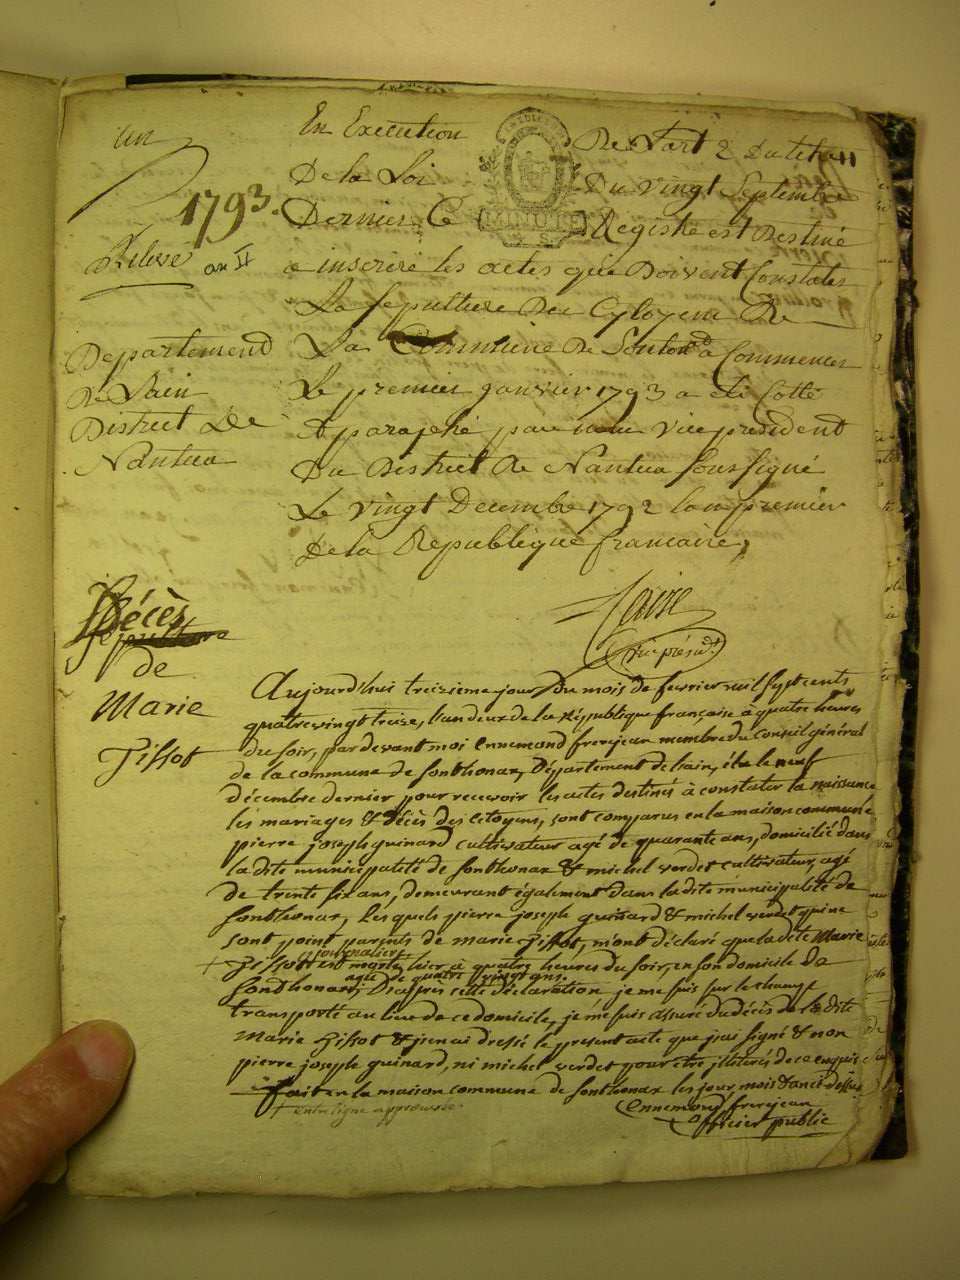 un
1793.
Relevé an II
En Execution De L'art 2 Du titre 11
De la Loi Du vingt Septembre
Dernier Ce MINUTE Registre est Destiné
a inscrire les actes que Doivent Constater
La sepulture Des Cytoyens De
Departement
De Lain
District De
Nantua
La Commune De Sonton a Commencer
Le premier janvier 1793 a eté Cotté
et paraphé par nous vice president
Du District De Nantua Soussigné
Le vingt Decembre 1792 lan premier
De la Republique francaise,
vice présidt
Décès
de
Marie
Tissot
Aujourd'hui treizieme jour Du mois de fevrier mil sept cents
quatrevingt treize, l'an deux de la République française à quatre heures
du soir, par devant moi Ennemond frerejean membre du Conseil général
de la commune de sonthonax, Département de lain, élu le neuf
décembre dernier pour recevoir les actes destinés à constater la naissance
les mariages & décès des citoyens, sont comparus en la maison commune
pierre joseph guinard cultivateur agé de quarante ans, domicilié dans
la dite municipalité de sonthonax & michel verdet cultivateur, agé
de trente six ans, demeurant également dans la dite municipalité de
sonthonax, lesquels pierre joseph guinard & michel verdet qui ne
sont point parents de marie Tissot, m'ont déclaré que la dite Marie
journaliere
+ Tissot est morte hier à quatre heures du soir, en son domicile de
agée de quatre vingt ans
sonthonax; D'après cette déclaration je me suis sur le champ
transporté au lieu de ce domicile, je me suis assuré du décès de la dite
Marie Tissot & j'en ai dressé le present acte que j'ai signé & non
pierre joseph guinard, ni michel verdet pour être illiterés de ce enquis
fait en la maison commune de sonthonax les jour mois & an ci dessus
+ entre ligne approuvée.
Ennemond frerejean
officier public